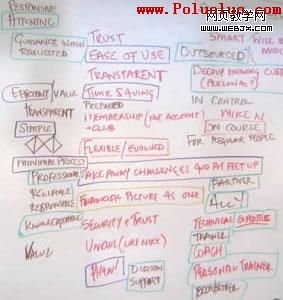 www.Poluoluo.com
网页教学网
www.webjx.com
RESPONSIVE
ATTENTIVE
GUIDANCE WHEN
REQUESTED
EFFICIENT/VALUE
TRANSPARENT
SIMPLE
MINIMAL PROCESS
PROFESSIONAL
RELIABLE
RESPONSIVE
KNOWLEDGEABLE
VALUE
TRUST
EASE OF USE
TRANSPARENT
TIME SAVING
PREPARED
MEMBERSHIP (NOT ACCOUNT)
CLUB
FLEXIBLE/EVOLVED
TAKE AWAY CHALLENGES AND PUT FEET UP
FINANCIAL PICTURE AS ONE
SECURITY + TRUST
UNIQUE (LIKE NIKE)
DECISION
SUPPORT
SMART WISE
OUTSOURCED
DEEPLY KNOWING
(PERSONAL?)
IN CONTROL
ON COURSE
FOR REGULAR PEOPLE
PARTNER
ALLY
TECHNICAL EXPERTISE
TRAINER
COACH
PERSONAL TRAINER